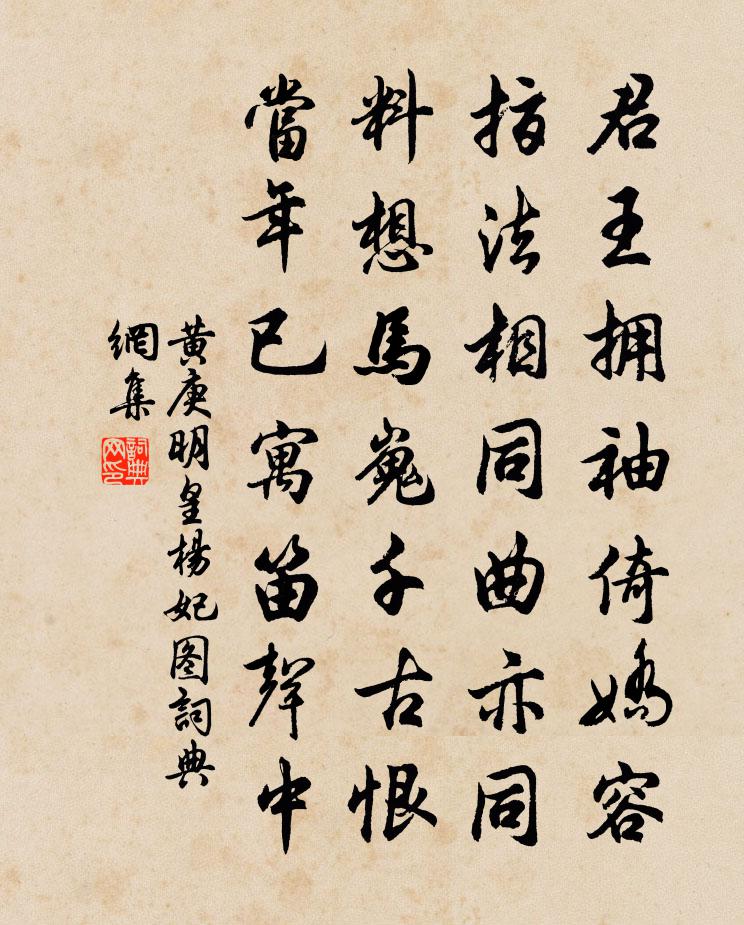 君王拥袖倚娇容
指法相同曲亦同
料想馬嵬千古恨
當年已寓笛聲中
黄庚明皇楊妃图詞典
網集
詞典
网印